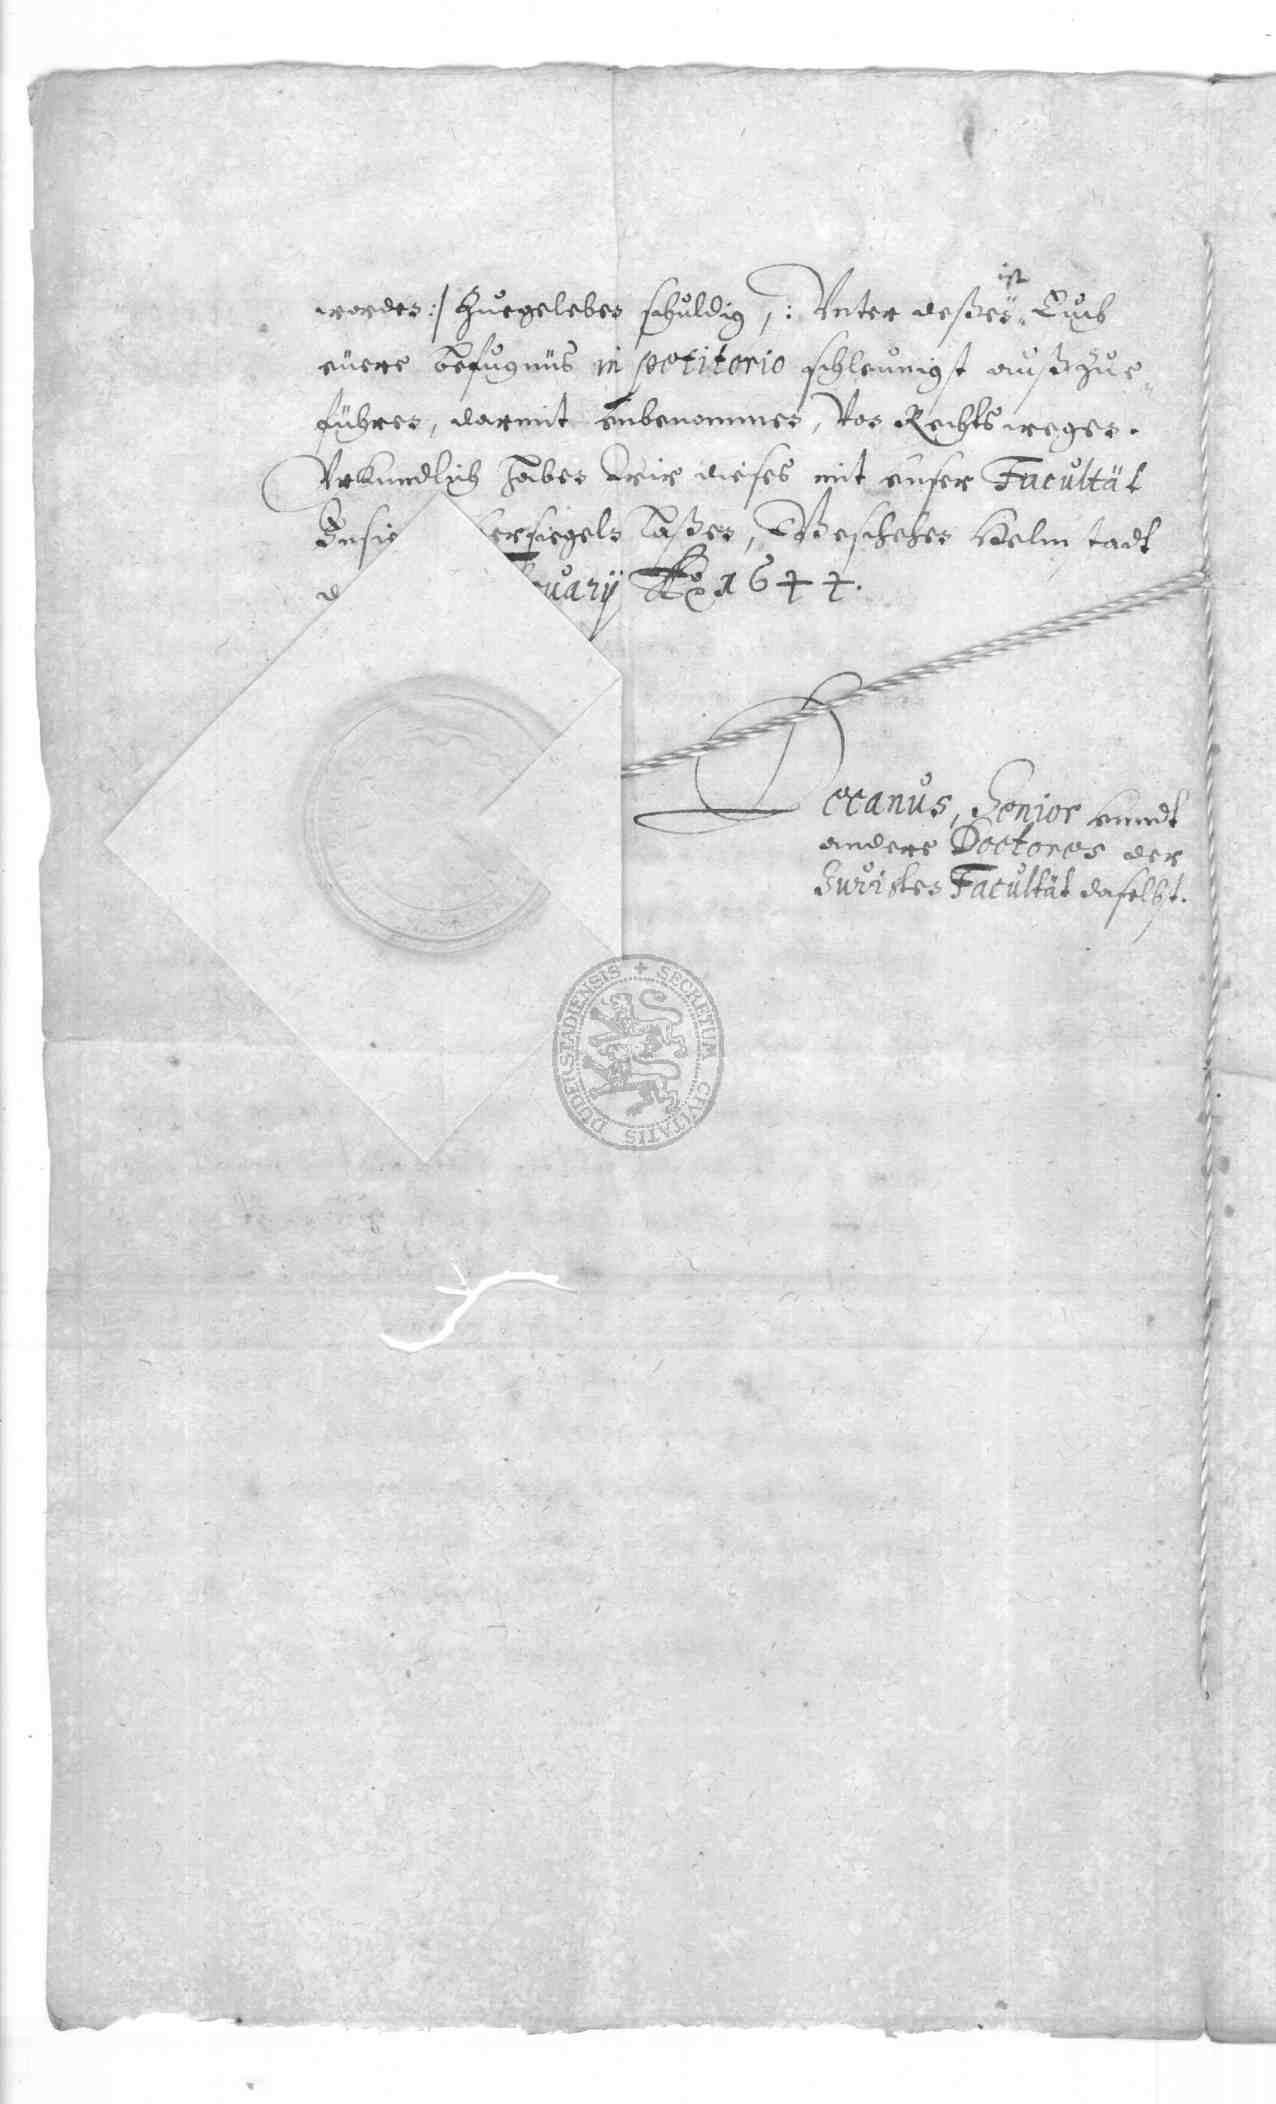 worden :/ zuegeleben schuldig, : Vnter deßen ist Euch
euere befugnüs in petitorio schleunigst außzue-
führen, darmit unbenommen, Von Rechts wegen.
Vrkundlich haben Wir dieses mit unser Facultät
Insie versiegeln laßen, Geschehen Helmstadt
d uarij Ao 1644.
Decanus, Senior unndt
andere Doctores der
Juristen Facultät daselbst.
SECRETUM CIVITATIS DUDERSTADIENSIS